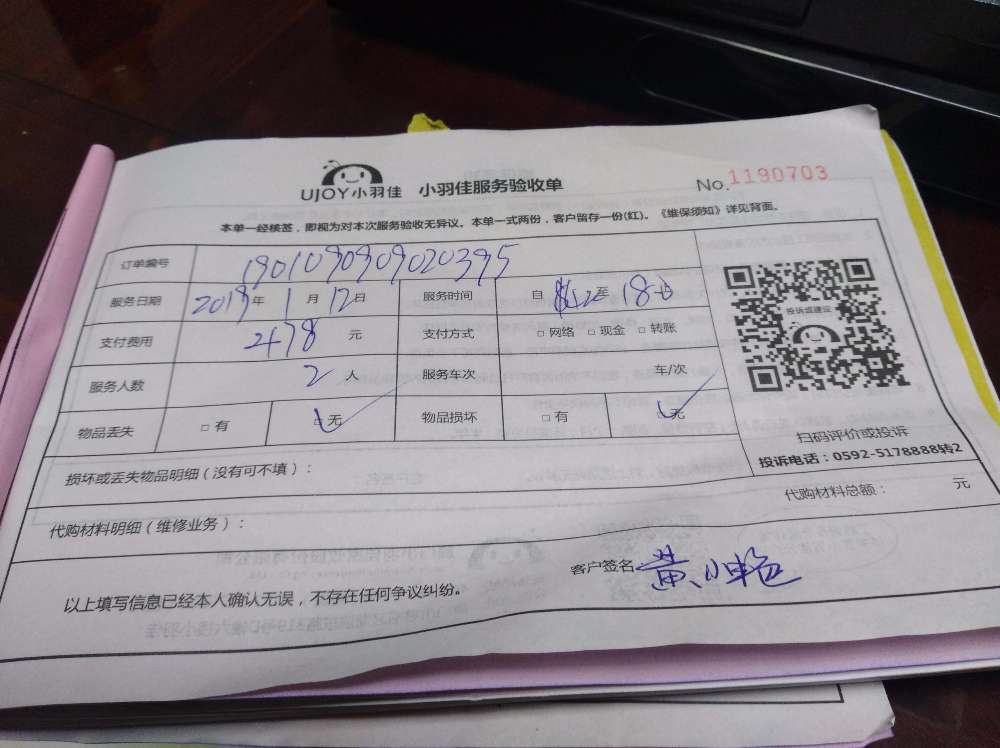 UJOY小羽佳 小羽佳服务验收单 No.1190703
本单一经核签，即视为对本次服务验收无异议。本单一式两份，客户留存一份(红)。《维保须知》详见背面。
订单编号 1901090909020395
服务日期 2019年 1月 12日 服务时间 自 至 18
支付费用 478 元 支付方式 □ 网络 □ 现金 □ 转账
服务人数 2 人 服务车次 车/次
物品丢失 □ 有 □ 无 物品损坏 □ 有 □ 无
投诉或建议
扫码评价或投诉
投诉电话：0592-5178888转2
损坏或丢失物品明细（没有可不填）：
代购材料明细（维修业务）： 代购材料总额： 元
以上填写信息已经本人确认无误，不存在任何争议纠纷。 客户签名 黄